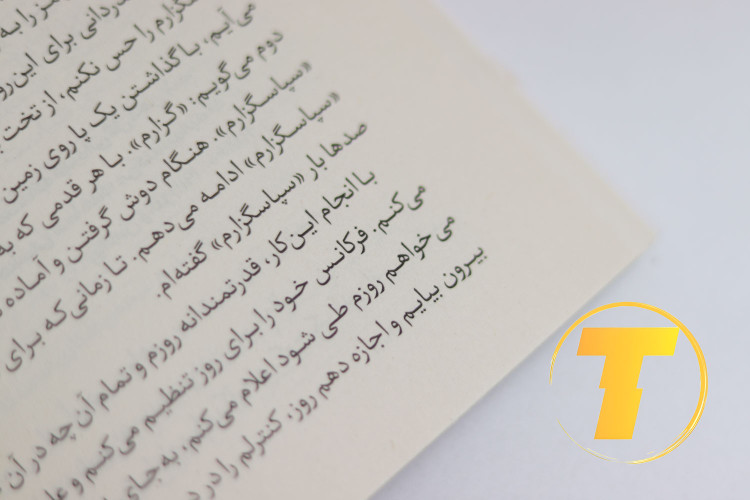 را به
برای این
را حس نکنم، از تخت
می‌آیم، با گذاشتن یک پا روی زمین
دوم می‌گویم: «گزارم». با هر قدمی که به
«سپاسگزارم». هنگام دوش گرفتن و آماده
«سپاسگزارم» ادامه می‌دهم. تا زمانی که برای
صدها بار «سپاسگزارم» گفته‌ام.
با انجام این‌کار، قدرتمندانه روزم و تمام آن چه در آن
می‌کنم. فرکانس خود را برای روز تنظیم می‌کنم و
می خواهم روزم طی شود اعلام می‌کنم، به جای
بیرون بیایم و اجازه دهم روز، کنترلم را در
T